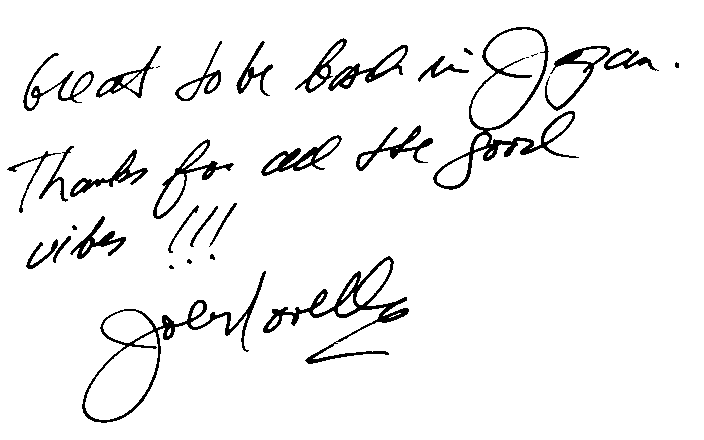 Great to be back in Japan.
Thanks for all the good
vibes !!!